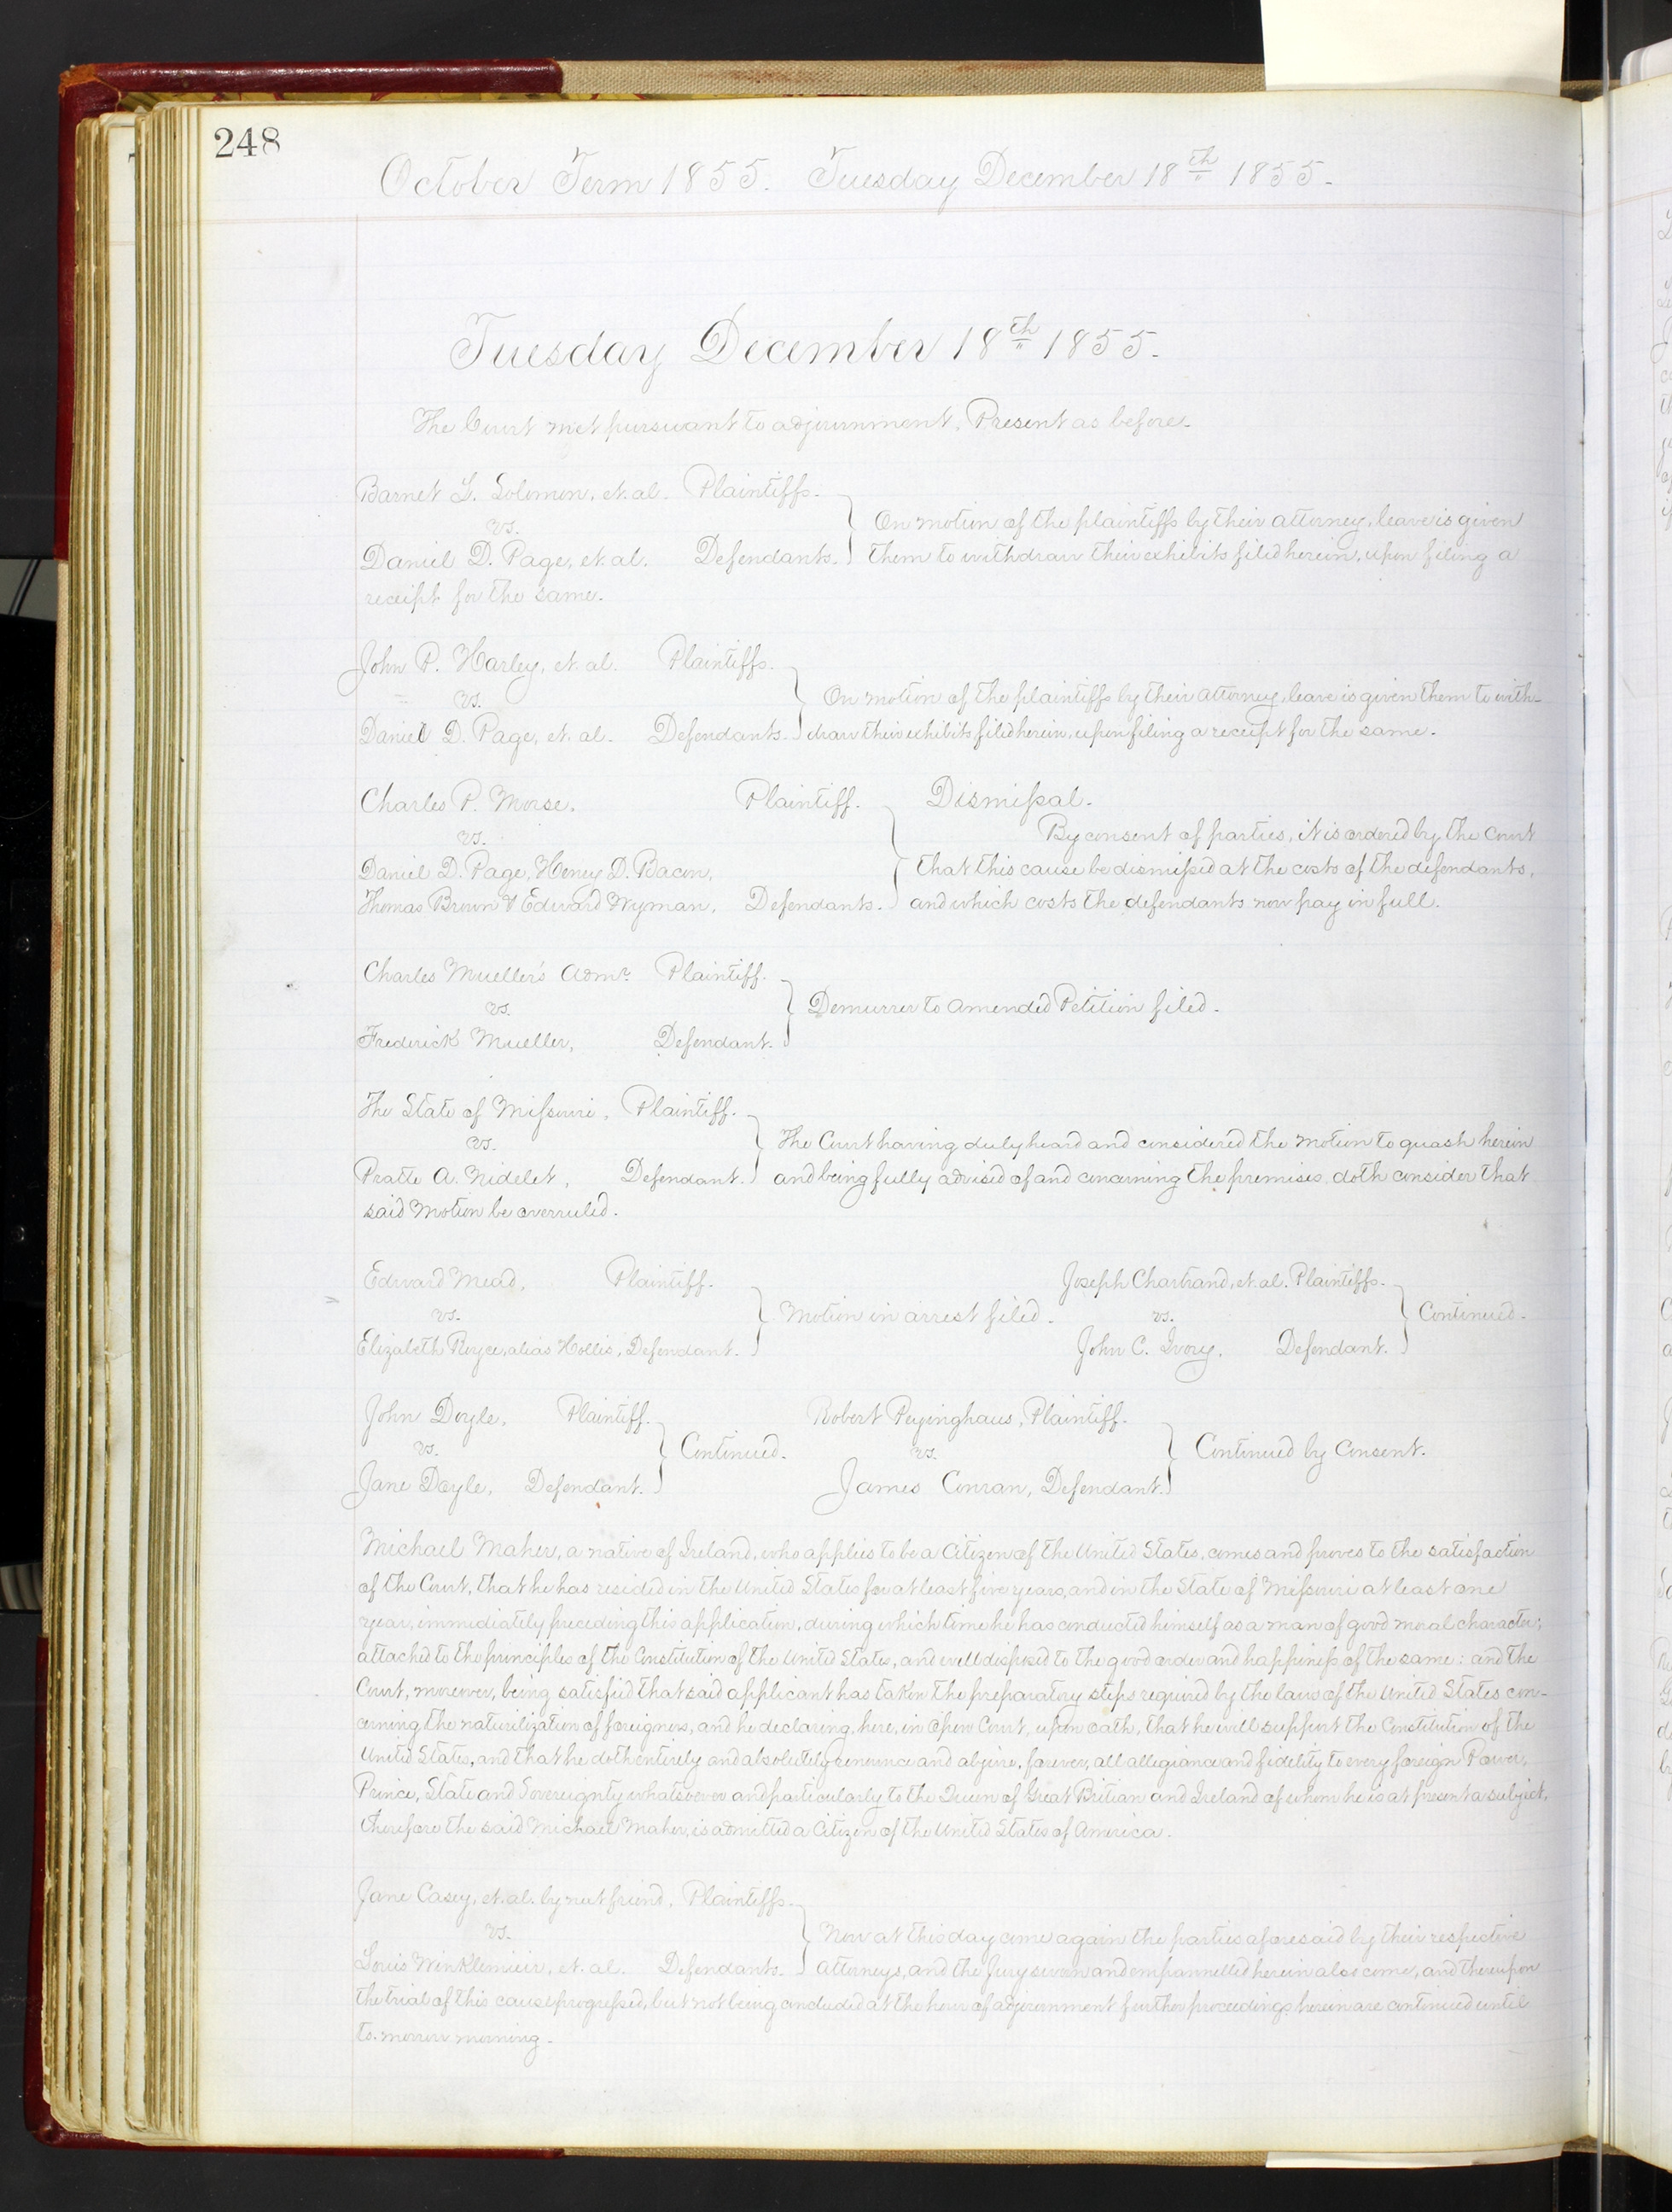 248
October Term 1855. Tuesday December 18th 1855.
Tuesday December 18th 1855.
The Court met pursuant to adjournment. Present as before.
Barnet L. Solomon, et. al. Plaintiffs.
vs.
Daniel D. Page, et. al. Defendants.
On motion of the plaintiffs by their attorney, leave is given
them to withdraw their exhibits filed herein, upon filing a
receipt for the same.
John P. Harley, et. al. Plaintiffs.
vs.
Daniel D. Page, et. al. Defendants.
On motion of the plaintiffs by their attorney, leave is given them to with-
draw their exhibits filed herein, upon filing a receipt for the same.
Charles P. Morse. Plaintiff.
vs.
Daniel D. Page, Henry D. Bacon,
Thomas Brown & Edward Wyman, Defendants.
Dismissal.
By consent of parties, it is ordered by the Court
that this cause be dismissed at the costs of the defendants,
and which costs the defendants now pay in full.
Charles Mueller's Admr. Plaintiff.
vs.
Frederick Mueller, Defendant.
Demurrer to Amended Petition filed.
The State of Missouri, Plaintiff.
vs.
Pratte A. Nidelet, Defendant.
The Court having duly heard and considered the motion to quash herein
and being fully advised of and concerning the premises, doth consider that
said motion be overruled.
Edward Mead, Plaintiff.
vs.
Elizabeth Royce, alias Hollis, Defendant.
Motion in arrest filed.
Joseph Chartrand, et. al. Plaintiffs.
vs.
John C. Ivory, Defendant.
Continued.
John Doyle, Plaintiff.
vs.
Jane Doyle, Defendant.
Continued.
Robert Peyinghaus, Plaintiff.
vs.
James Conran, Defendant.
Continued by Consent.
Michael Maher, a native of Ireland, who applies to be a Citizen of the United States, comes and proves to the satisfaction
of the Court, that he has resided in the United States for at least five years, and in the State of Missouri at least one
year, immediately preceding this application, during which time he has conducted himself as a man of good moral character;
attached to the principles of the Constitution of the United States, and well disposed to the good order and happiness of the same: and the
Court, moreover, being satisfied that said applicant has taken the preparatory steps required by the laws of the United States con-
cerning the naturilization of foreigners, and he declaring, here, in open Court, upon oath, that he will support the Constitution of the
United States, and that he doth entirely and absolutely renounce and abjure, forever, all allegiance and fidelity to every foreign Power,
Prince, State and Sovereignty whatsoever and particularly to the Queen of Great Britian and Ireland of whom he is at present a subject,
Therefore the said Michael Maher, is admitted a Citizen of the United States of America.
Jane Casey, et. al. by next friend, Plaintiffs.
vs.
Louis Winklemeier, et. al. Defendants.
Now at this day come again the parties aforesaid by their respective
attorneys, and the Jury sworn and empannelled herein also come, and thereupon
the trial of this cause progressed, but not being concluded at the hour of adjournment further proceedings herein are continued until
to-morrow morning.